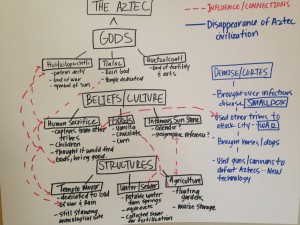 THE AZTEC
--- INFLUENCE/CONNECTIONS
— Disappearance of Aztec
civilization
GODS
Huitzilopochtli
- patron deity
- God of war
- symbol of sun
Tlaloc
- Rain God
- Temple dedicated
Quetzalcoatl
- God of fertility
& arts
BELIEFS/CULTURE
Human Sacrifice
- captives from other
tribes
- Children
- thought it would feed
Gods, bring good
Foods
- Vanilla
- Chocolate
- Corn
Infamous Sun Stone
- Calendar?
- Geographic reference?
STRUCTURES
Templo Mayor
- dedicated to God
of War & Rain
- Still standing
archeological site
Water/Sewer
- potable water
from springs
- aqueducts
- collected sewer
for fertilization
Agriculture
- floating
gardens
- maize storage
DEMISE/CORTES
- Brought over infectious
disease SMALLPOX
- Used other tribes to
attack City - WAR
- Brought horses/dogs
- Used guns/cannons to
defeat Aztecs - New
technology